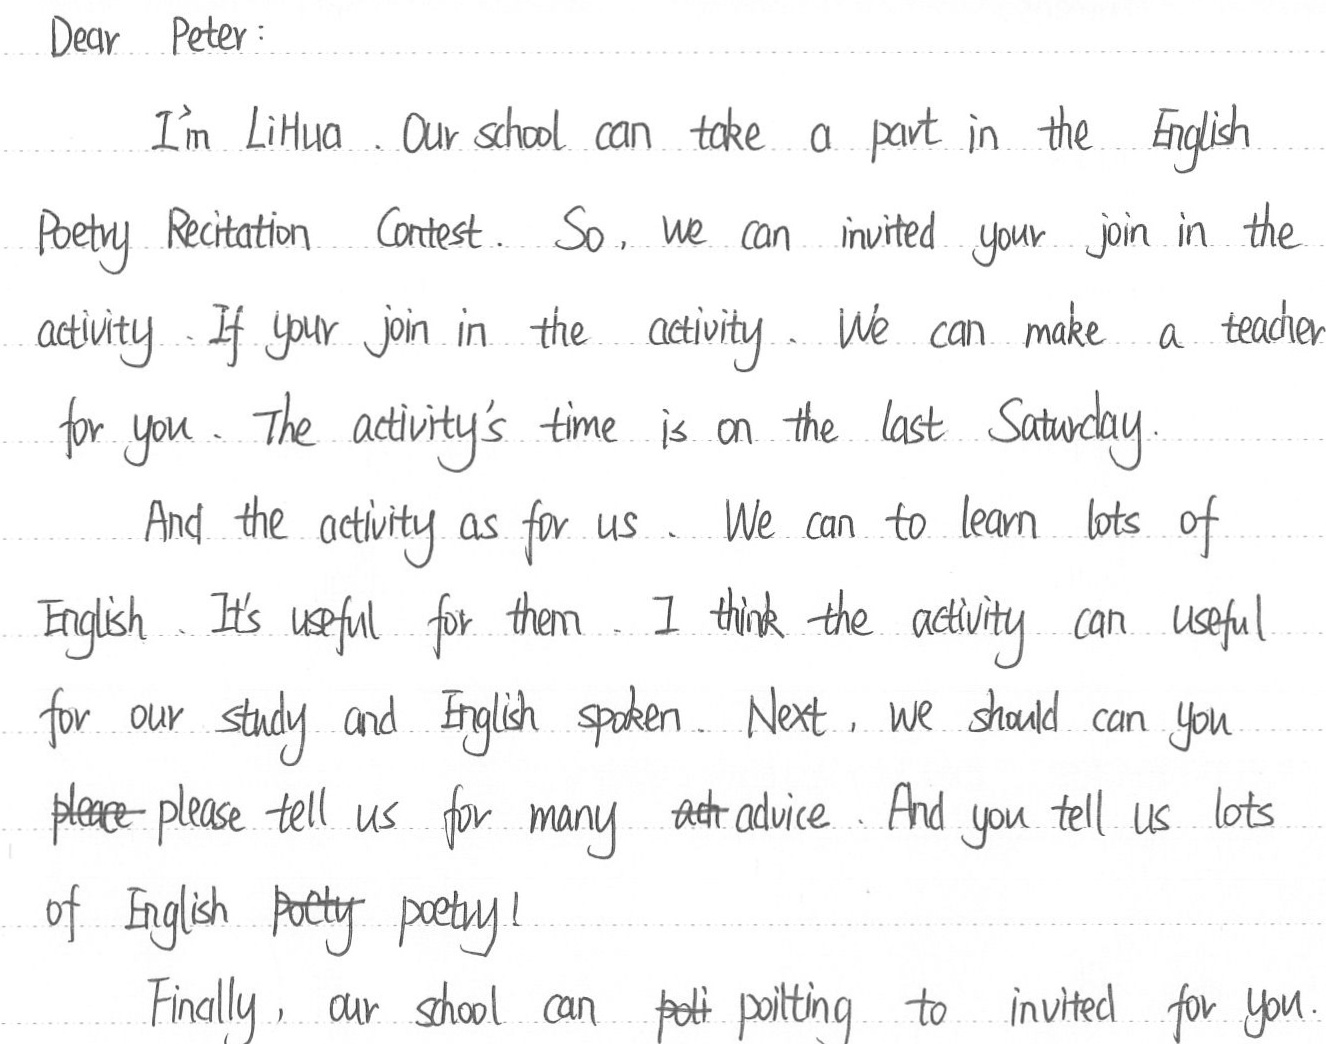 Dear Peter:
I'm LiHua. Our school can take a part in the English
Poetry Recitation Contest. So, we can invited your join in the
activity. If your join in the activity. We can make a teacher
for you. The activity's time is on the last Saturday.
And the activity as for us. We can to learn lots of
English. It's useful for them. I think the activity can useful
for our study and English spoken. Next, we should can you
please tell us for many advice. And you tell us lots
of English poetry!
Finally, our school can poitting to invited for you.